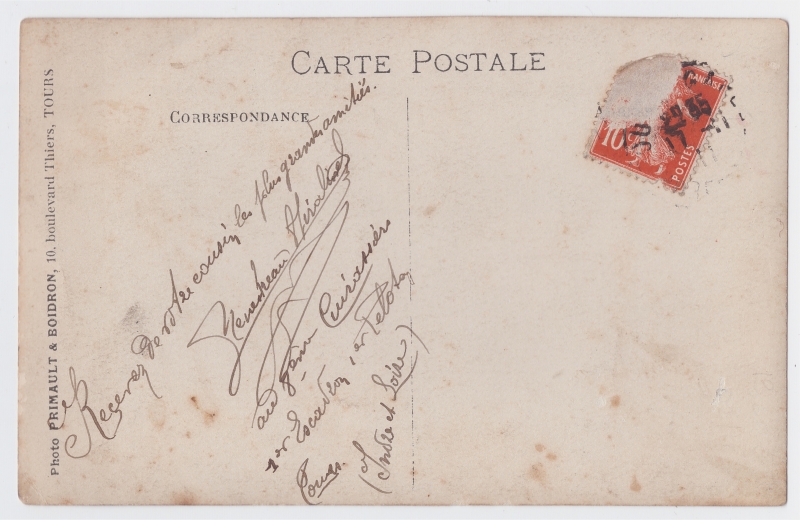 CARTE POSTALE
CORRESPONDANCE
Photo PRIMAULT & BOIDRON, 10, boulevard Thiers, TOURS
Recevez de votre cousin les plus grandes amitiés.
au 8eme Cuirassiers
1er Escadron 1er Peloton
Tours.
(Indre et Loire)
10c
POSTES